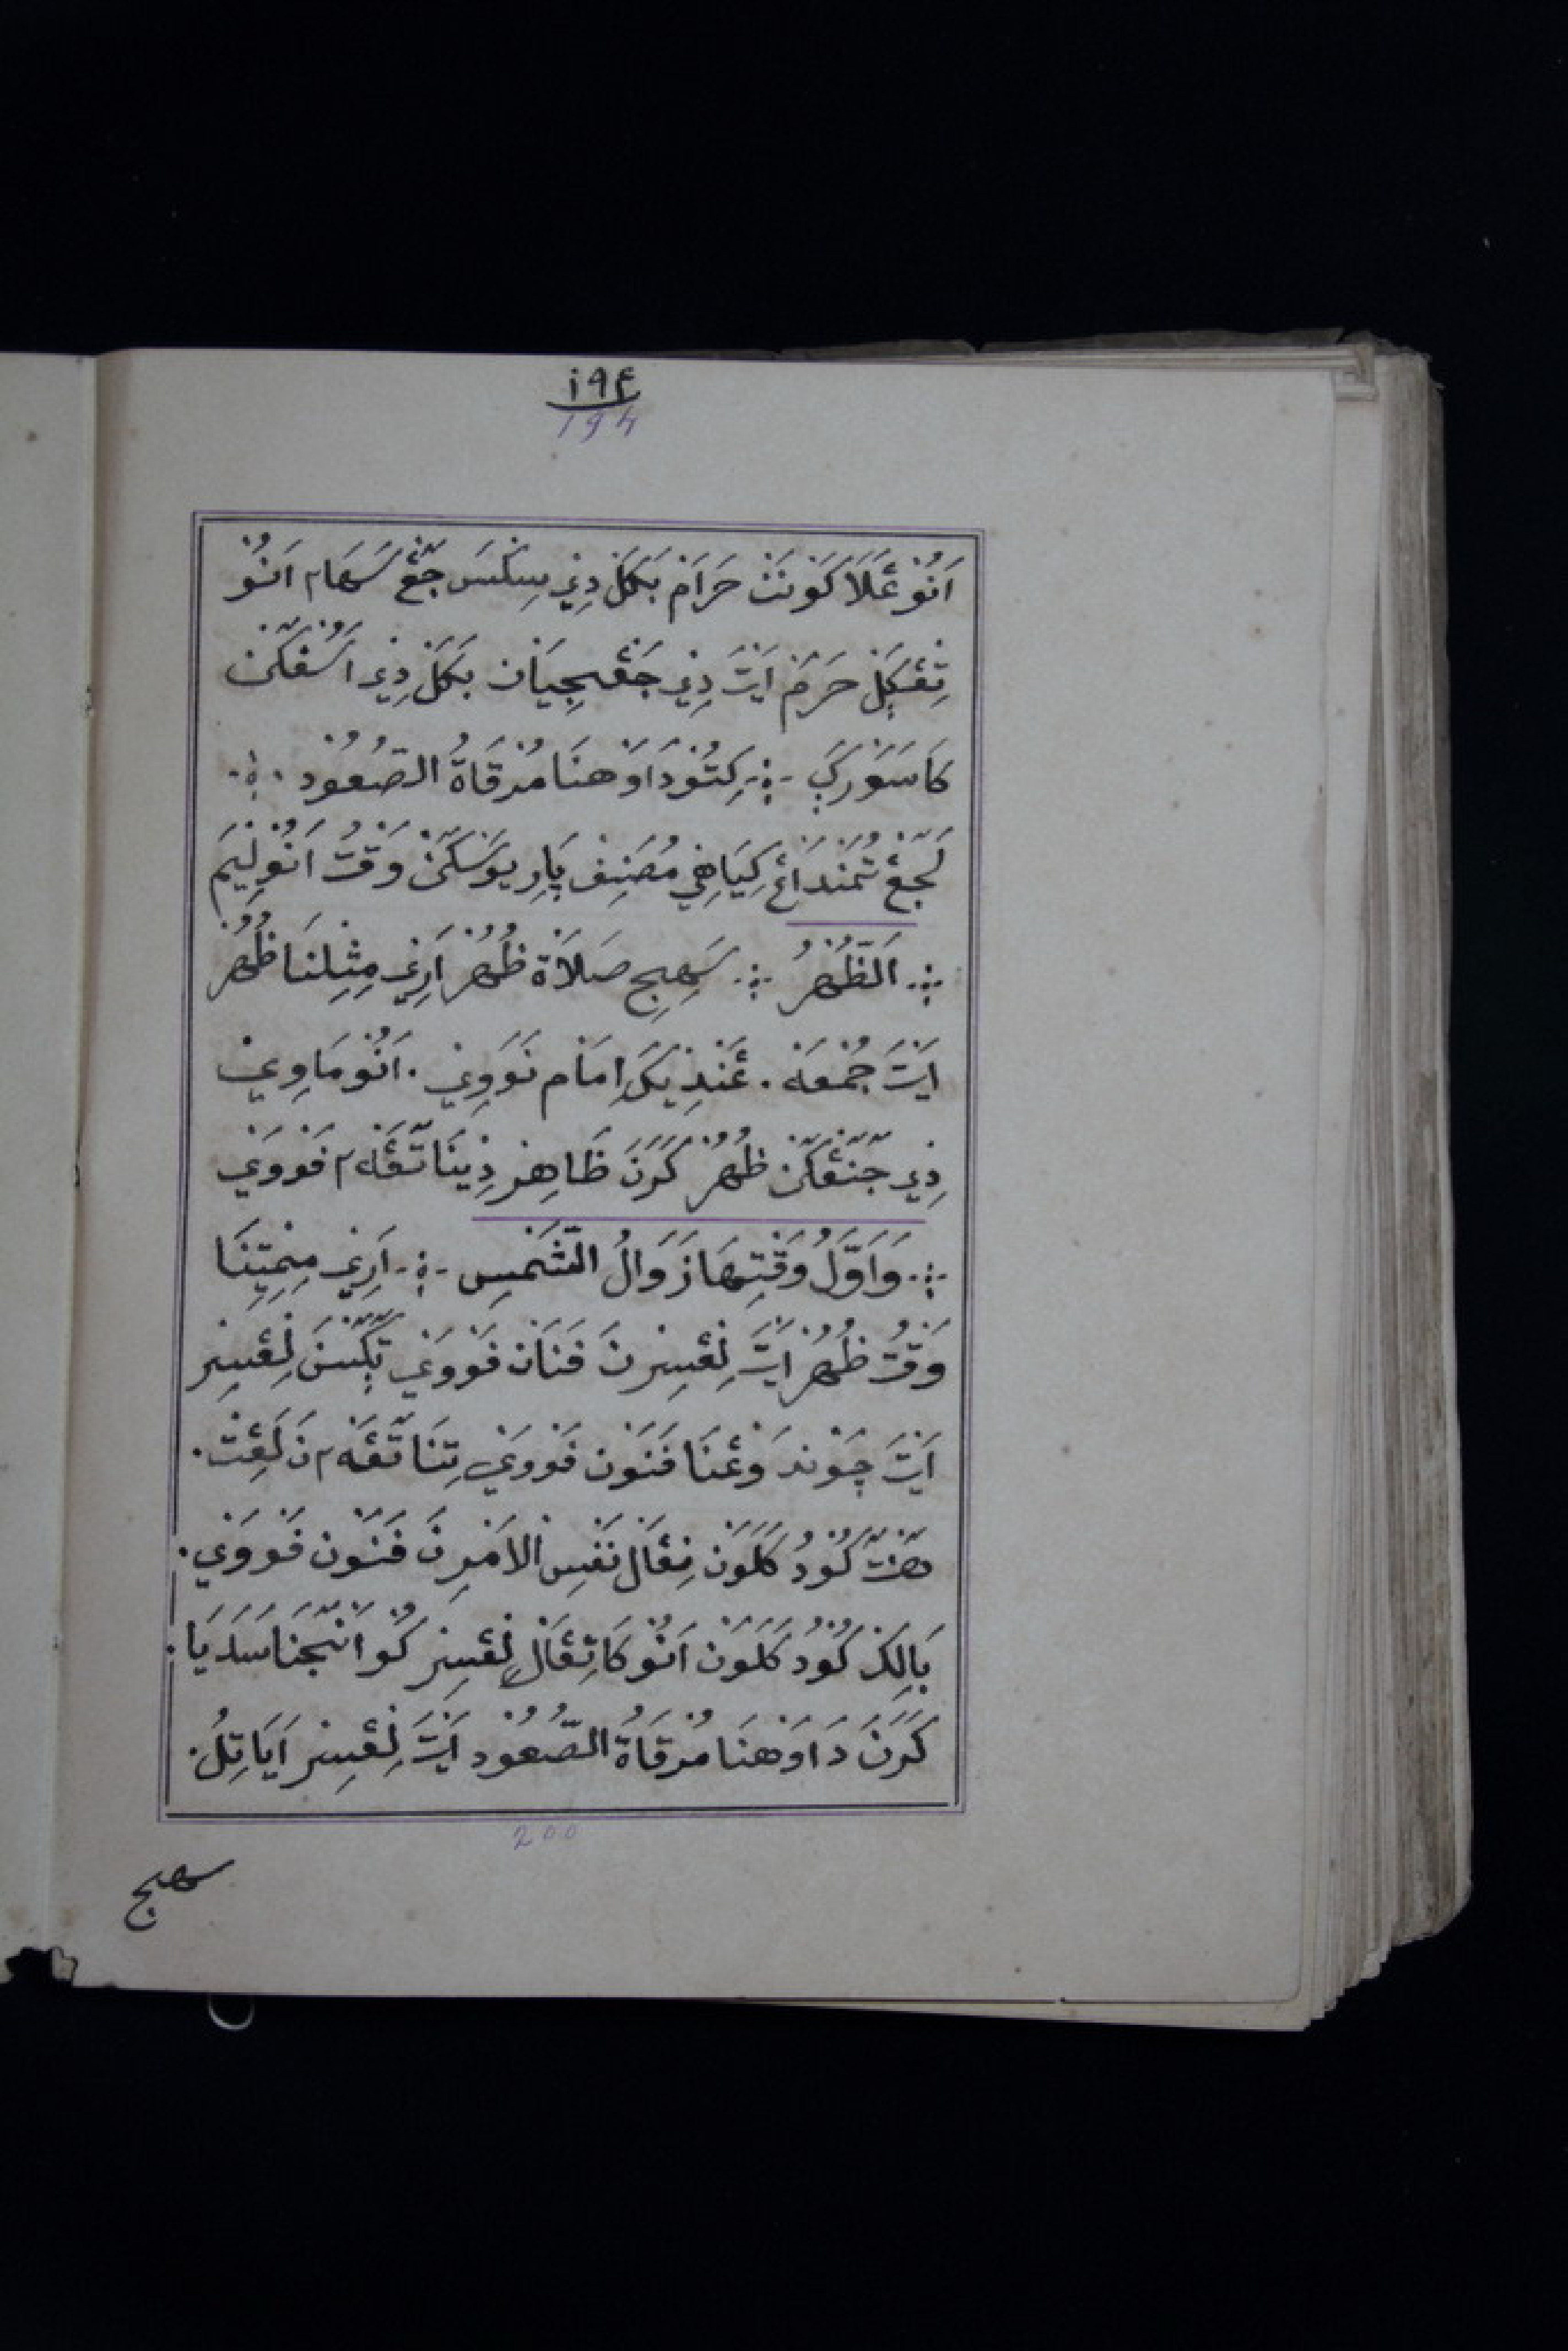 ١٩٤
194
اَنُوْ عَلَاكَوْنَنْ حَرَامْ بَكَلْ دِيْ سِكْسَ جَغْ سَهَام اَنُوْ
تِڠْكَلْ حَرَمْ اَيْتَ دِيْ جَڠْجِيَان بَكَلْ دِيْ اَسُڤْكَنْ
كَاسَوَرْكَ ؞ كِتُوْدَاوَوْهنَا مُرْقَاةُ الصُّعُوْد ؞
لَجَڠْ تُمَنْدَاڠْ كِيَاهِيْ مُصَنِفْ پَارِيوَسَكَنْ وَقْتُ اَنُوْلِيمَ
؞ اَلظُّهْرُ ؞ سَهِجِ صَلَاةْ ظُهُرْ اَرِيْ مِثِلنَا ظُهُرْ
اَيْتَ جُمْعَهْ . عَنْدِيْكَ اِمَام نَوَوِيْ . اَنُوْ مَاوِيْ
دِيْ جَنَڠَكَنْ ظُهُرْ كَرَنَ ظَاهِرْ دِيْنَا تَڠَه۲ ڤَوْوَيْ
؞ وَاَوَّلُ وَقْتِهَا زَوَالُ الشَّمْسِ ؞ اَرِيْ مِمِتِنَا
وَقْتُ ظُهُرْ اَيْتَ لِڠْسِرْنَ ڤَنَان ڤَوْوَيْ تَݢَسَنْ لِڠْسِرْ
اَيْتَ چَوْندَوْڠنَا ڤَنَوْن ڤَوْوَيْ تِنَا تَڠَه۲ نَ لَڠِتْ .
هَنْتَ كُوْدُ كَلَوَنْ نِڠَالْ نَفْسِ الاَمْرِنَ ڤَنَوْن ڤَوْوَيْ .
بَالِكَنْ كُوْدُ كَلَوَن اَنُوْ كَاتِڠَالْ لِڠْسِرْ كُوْ اَنْجَنَا سَدَيَا .
كَرَنَ دَاوَوْهنَا مُرْقَاةُ الصُّعُوْد اَيْتَ لِڠْسِرْ اَيَاتِلُ .
200
سهج